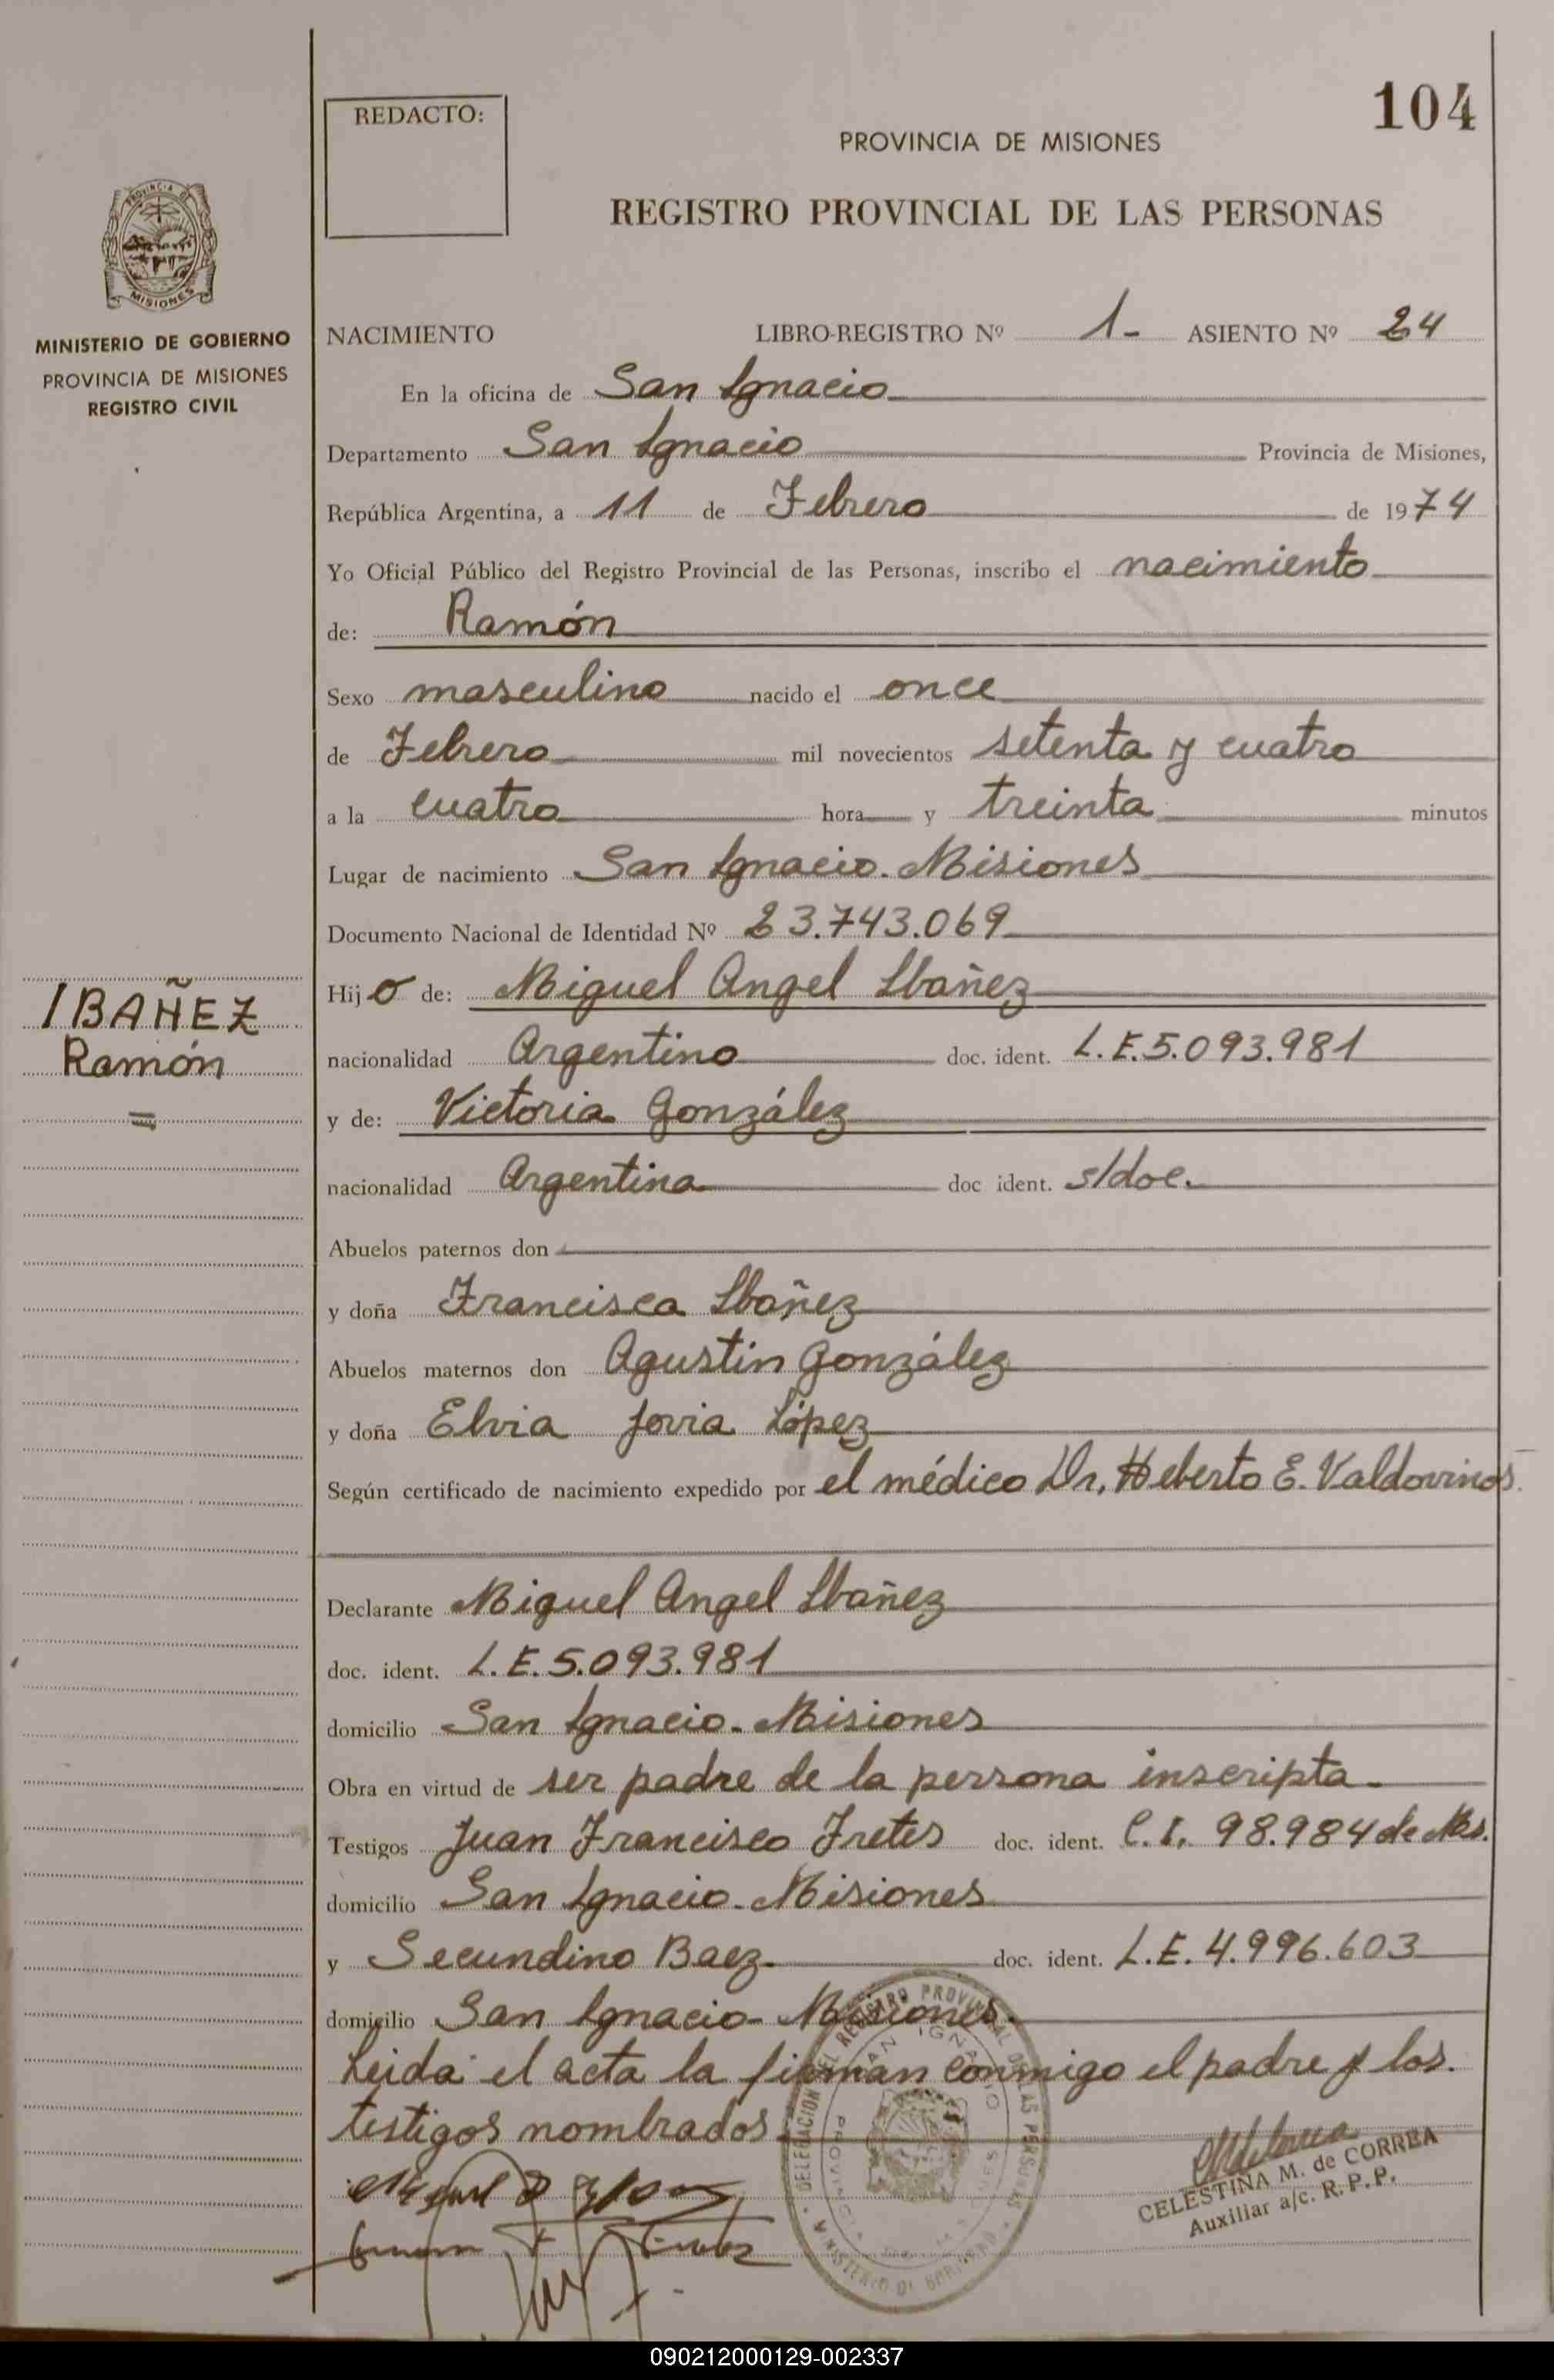 104
REDACTO:
PROVINCIA DE MISIONES
REGISTRO PROVINCIAL DE LAS PERSONAS
PROVINCIA DE
MISIONES
MINISTERIO DE GOBIERNO
PROVINCIA DE MISIONES
REGISTRO CIVIL
NACIMIENTO LIBRO-REGISTRO Nº 1- ASIENTO Nº 24
En la oficina de San Ignacio
Departamento San Ignacio Provincia de Misiones,
República Argentina, a 11 de Febrero de 1974
Yo Oficial Público del Registro Provincial de las Personas, inscribo el nacimiento
de: Ramón
Sexo masculino nacido el once
de Febrero mil novecientos setenta y cuatro
a la cuatro hora y treinta minutos
Lugar de nacimiento San Ignacio. Misiones
Documento Nacional de Identidad Nº 23.743.069
IBAÑEZ
Ramón
Hijo de: Miguel Angel Ibañez
nacionalidad Argentino doc. ident. L.E.5.093.981
y de: Victoria González
nacionalidad Argentina doc ident. s/doc.
Abuelos paternos don
y doña Francisca Ibañez
Abuelos maternos don Agustin González
y doña Elvia Jovia López
Según certificado de nacimiento expedido por el médico Dr. Heberto E. Valdovinos.
Declarante Miguel Angel Ibañez
doc. ident. L.E.5.093.981
domicilio San Ignacio. Misiones
Obra en virtud de ser padre de la persona inscripta.
Testigos Juan Francisco Fretes doc. ident. C.I. 98.984 de Mes.
domicilio San Ignacio. Misiones
y Secundino Baez. doc. ident. L.E. 4.996.603
domicilio San Ignacio- Misiones.
Leida el acta la firman conmigo el padre y los.
testigos nombrados.
DELEGACION DEL REGISTRO PROVINCIAL DE LAS PERSONAS
SAN IGNACIO
MINISTERIO DE GOBIERNO
CELESTINA M. de CORREA
Auxiliar a/c. R.P.P.
090212000129-002337